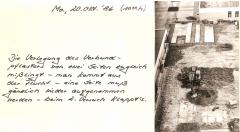 Mo, 20. Okt. '86 (10 Uhr)
Die Verlegung des Verbund-
pflasters von zwei Seiten zugleich
mißlingt - man kommt aus
der Flucht - eine Seite muß
gänzlich wieder aufgenommen
werden - beim 2. Versuch klappt's.